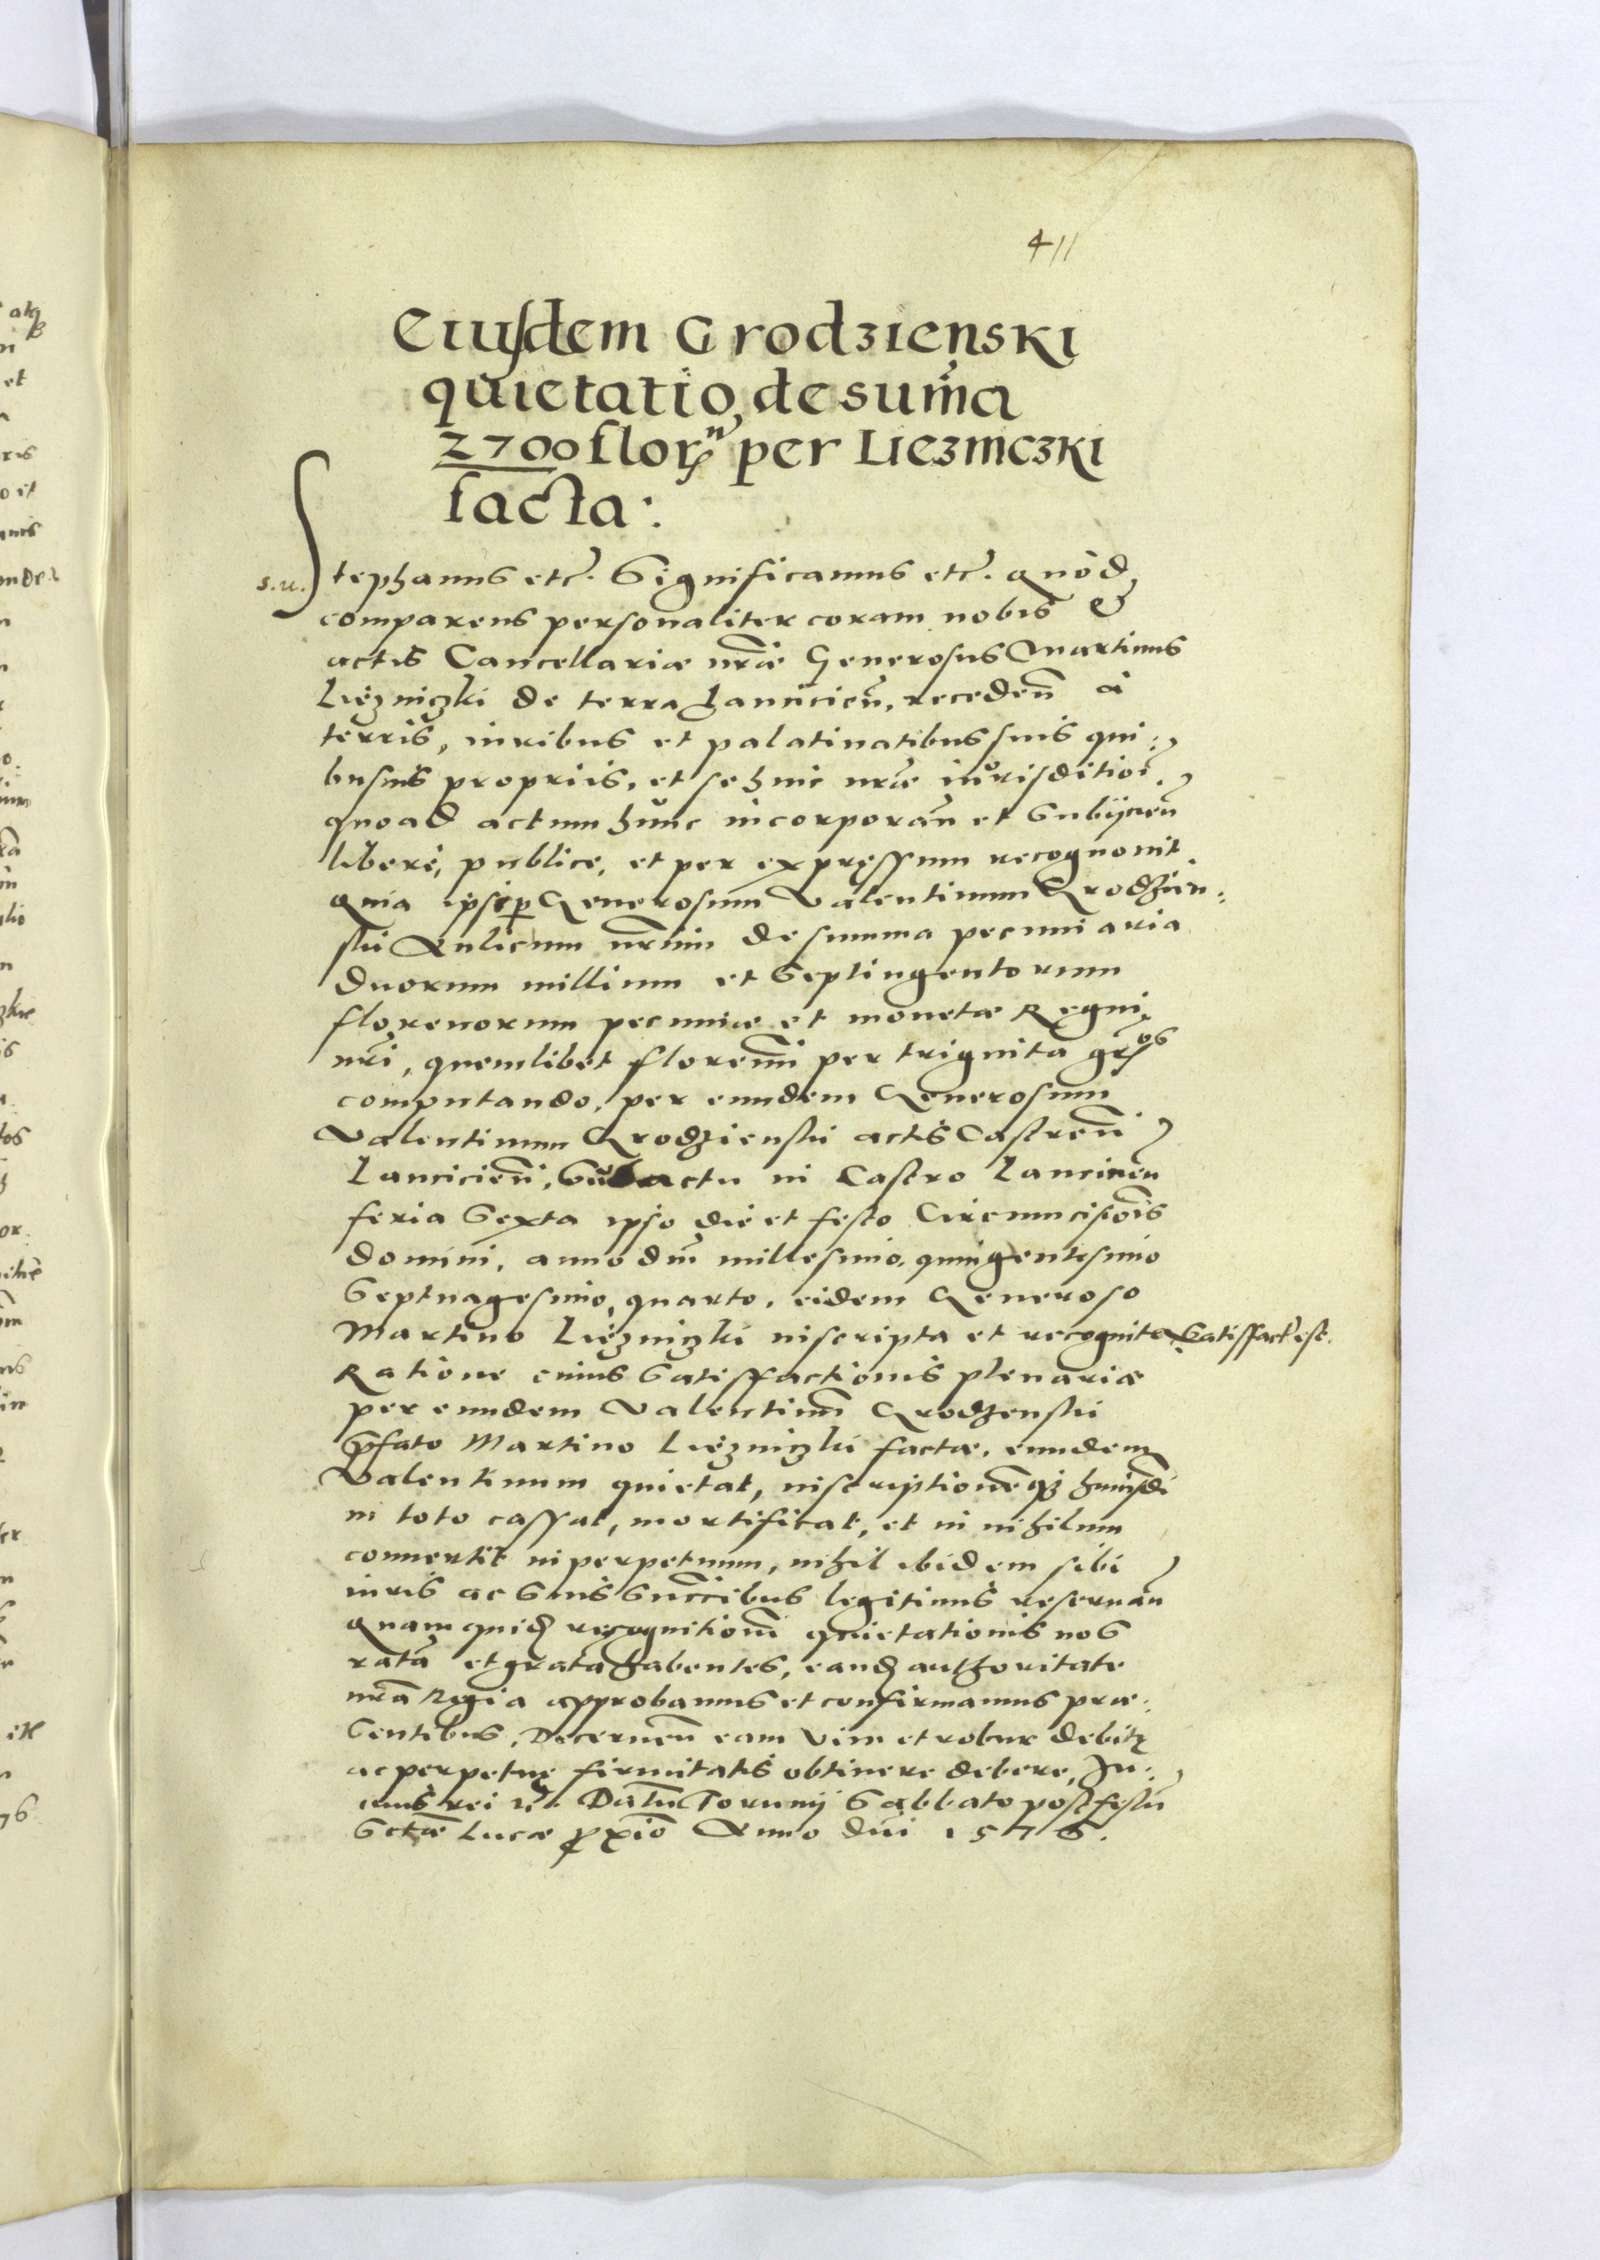 411
Eiusdem Grodzienski
quietatio de sum̃a
2700 florꝝ per Liezniczki
facta:
s.u. Stephanus etc. Significamus etc. Quod
comparens personaliter coram nobis &
actis Cancellariæ nr̃æ Generosus Martinus
Liezniczki de terra Lanicien̄, receden̄ à
terris, iuribus et palatinatibus suis qui:
busuis propriis, et se huic nr̃æ iurisditioī
quoad actum hunc incorporan̄ et subijcien̄
liberè, publice, et per expressum recognouit
Quia ipse Generosum Valentinum Grodzien:
ski Aulicum nr̃um de summa pecuniaria
duorum millium et septingentorum
florenorum pecuniæ et monetæ Regni
nr̃i, quemlibet florenū per triginta gros
computando, per eundem Generosum
Valentinum Grodzienski actis Castren̄
Lancicien̄, sub actu in Castro Lancicien̄
feria sexta ipso die et festo Circumcisiōis
domini, anno dn̄i millesimo, quingentesimo
septuagesimo, quarto, eidem Generoso
Martino Liezniczki inscripta et recognita Satisfact̄ est.
Ratione cuius satisfactionis plenariæ
per eundem Valentinū Grodzenski
p̄fato Martino Liezniczki factæ, eundem
Valentinum quietat, inscriptionēq₃ huiusdi
in toto cassat, mortificat, et in nihilum
conuertit in perpetuum, nihil ibidem sibi
iuris ac suis succ̄ibus legitimis reseruan̄
Quam quid̄ recognitionē quietationis nos
ratā et gratā habentes, eand̄ authoritate
nr̃a Regia approbamus et confirmamus præ:
sentibus, Decernen̄ eam vim et robur debitę
ac perpetuę firmitatis obtinere debere, In
cuius rei etc. Datum Torunij Sabbato post festū
Sctæ Lucæ ꝓxiō Anno dn̄i 1576.